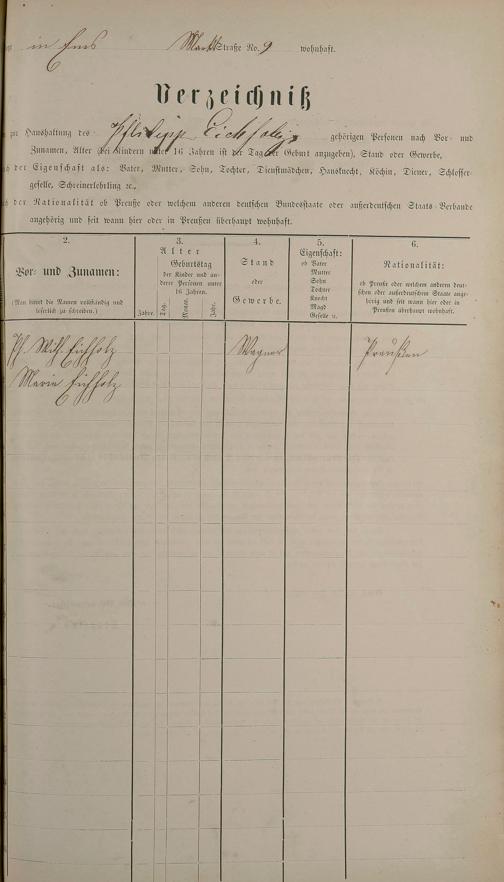 in Ems Markt Straße No. 9 wohnhaft.
Verzeichniß
zur Haushaltung des Philipp Eichholz gehörigen Personen nach Vor- und
Zunamen, Alter (bei Kindern unter 16 Jahren ist der Tag der Geburt anzugeben), Stand oder Gewerbe,
der Eigenschaft als: Vater, Mutter, Sohn, Tochter, Dienstmädchen, Hausknecht, Köchin, Diener, Schlosser-
geselle, Schreinerlehrling ꝛc.,
der Nationalität ob Preuße oder welchem anderen deutschen Bundesstaate oder außerdeutschen Staats-Verbande
angehörig und seit wann hier oder in Preußen überhaupt wohnhaft.
2. 3. 4. 5. 6.
Vor- und Zunamen:
(Man bittet die Namen vollständig und
leserlich zu schreiben.)
Alter
Geburtstag
der Kinder und an-
derer Personen unter
16 Jahren.
Jahre. Tag. Monat. Jahr.
Stand
oder
Gewerbe.
Eigenschaft:
ob Vater
Mutter
Sohn
Tochter
Knecht
Magd
Geselle ꝛc.
Nationalität:
ob Preuße oder welchem anderen deut-
schen oder außerdeutschem Staate ange-
hörig und seit wann hier oder in
Preußen überhaupt wohnhaft.
Ph. Wilh. Eichholz Wagner Preußen
Marie Eichholz